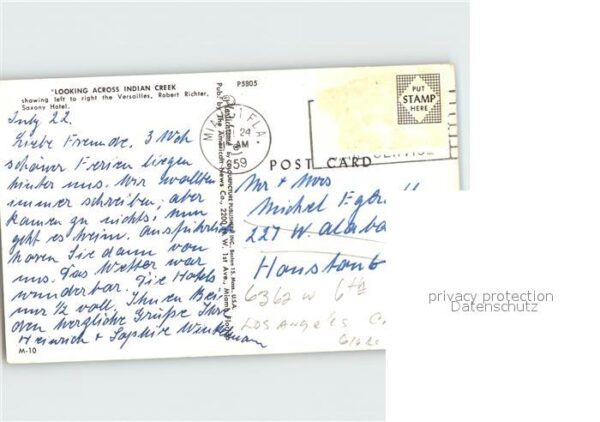 "LOOKING ACROSS INDIAN CREEK
showing left to right the Versailles, Robert Richter,
Saxony Hotel.
P5805
July 22.
Liebe Freunde. 3 Woch
schöner Ferien liegen
hinter uns. Wir wollten
immer schreiben, aber
kamen zu nichts, nun
geht es heim. Ausführlich
hören Sie dann von
uns. Das Wetter war
wunderbar. Die Hotels
nur ½ voll. Ihnen Bei
den herzliche Grüße Ihre
Heinrich + Sophie
M-10
Pub. by The American News Co., 2200 N. W. 1st Ave., Miami, Florida
COLOURPICTURE PUBLISHERS INC. Boston 15, Mass. USA
MIAMI FLA.
24
AM
1959
PUT
STAMP
HERE
POST CARD
Mr + Mrs
Michel
227 W.
6362 W 6th
LOS ANGELES C
privacy protection
Datenschutz